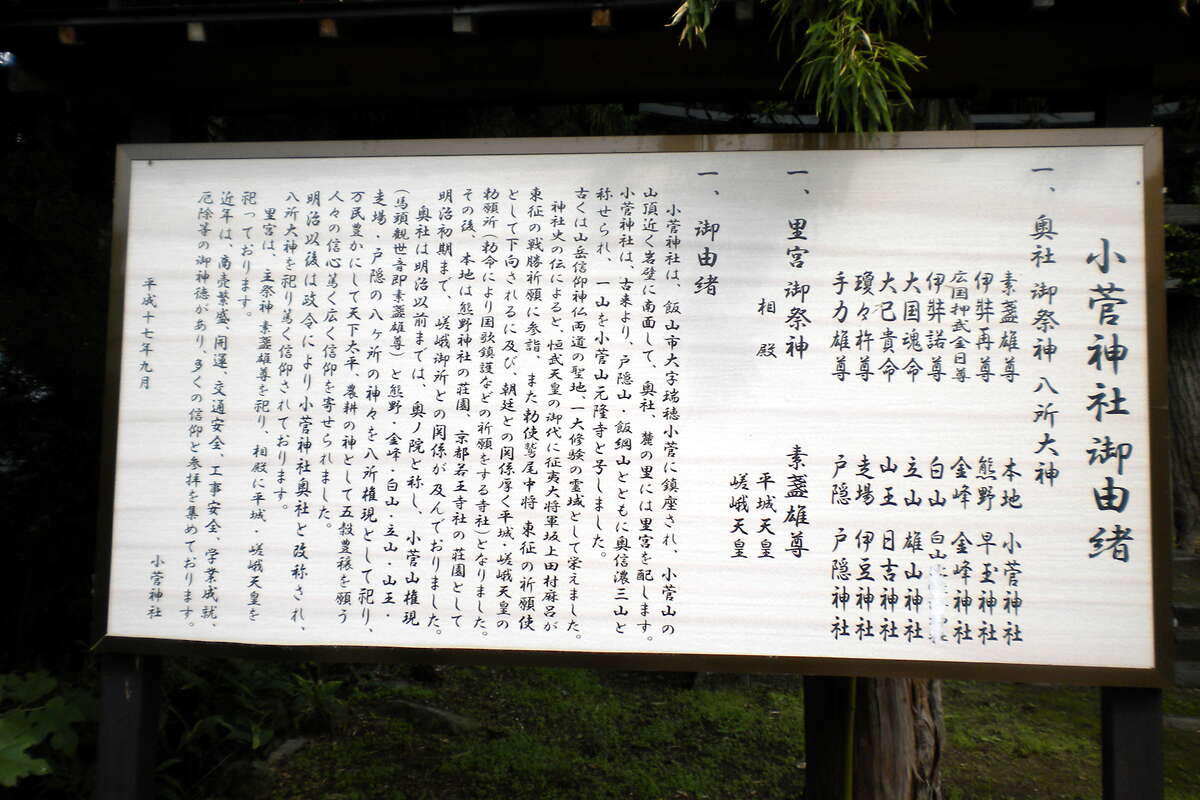 小菅神社御由緒
一、奥社 御祭神 八所大神
素盞雄尊 本地 小菅神社
伊弉再尊 熊野 早玉神社
広国押武金日尊 金峰 金峰神社
伊弉諾尊 白山 白山
大国魂命 立山 雄山神社
大已貴命 山王 日吉神社
瓊々杵尊 走場 伊豆神社
手力雄尊 戸隠 戸隠神社
一、里宮 御祭神 素盞雄尊
相殿 平城天皇
嵯峨天皇
一、御由緒
小菅神社は、飯山市大字瑞穂小菅に鎮座され、小菅山の
山頂近く岩壁に南面して、奥社、麓の里には里宮を配します。
小菅神社は、古来より、戸隠山・飯綱山とともに奥信濃三山と
称せられ、一山を小菅山元隆寺と号しました。
古くは山岳信仰神仏両道の聖地、一大修験の霊域として栄えました。
神社史の伝によると、恒武天皇の御代に征夷大将軍坂上田村麻呂が
東征の戦勝祈願に参詣、また勅使鷲尾中将 東征の祈願使
として下向されるに及び、朝廷との関係厚く平城、嵯峨天皇の
勅願所（勅命により国歌鎮護などの祈願をする寺社）となりました。
その後、本地は熊野神社の荘園、京都若王寺社の荘園として
明治初期まで、嵯峨御所との関係が及んでおりました。
奥社は明治以前までは、奥ノ院と称し、小菅山権現
（馬頭観世音即素盞雄尊）と熊野・金峰・白山・立山・山王・
走場・戸隠の八ヶ所の神々を八所権現として祀り、
万民豊かにして天下太平、農耕の神として五穀豊穣を願う
人々の信心篤く広く信仰を寄せられました。
明治以後は政令により小菅神社奥社と改称され、
八所大神を祀り篤く信仰されております。
里宮は、主祭神 素盞雄尊を祀り、相殿に平城・嵯峨天皇を
祀っております。
近年は、商売繁盛、開運、交通安全、工事安全、学業成就、
厄除等の御神徳があり、多くの信仰と参拝を集めております。
平成十七年九月
小菅神社